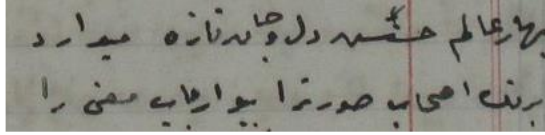 بهار عالم حسنش دل و جان تازه میدارد
برنک اصحاب صورترا ببو ارباب معنی را